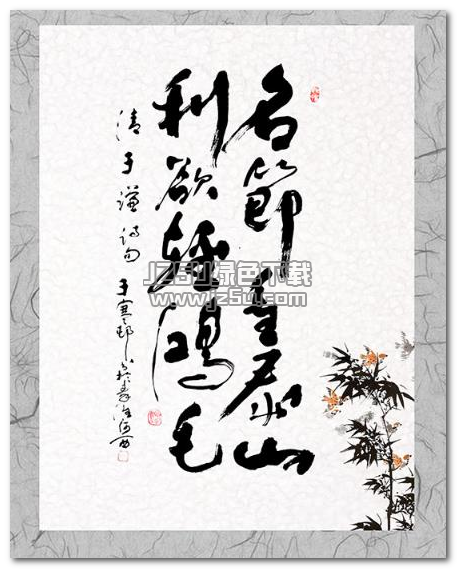 名節重泰山
利欲輕鴻毛
清于謙詩句
JZ5U绿色下载
www.jz5u.com